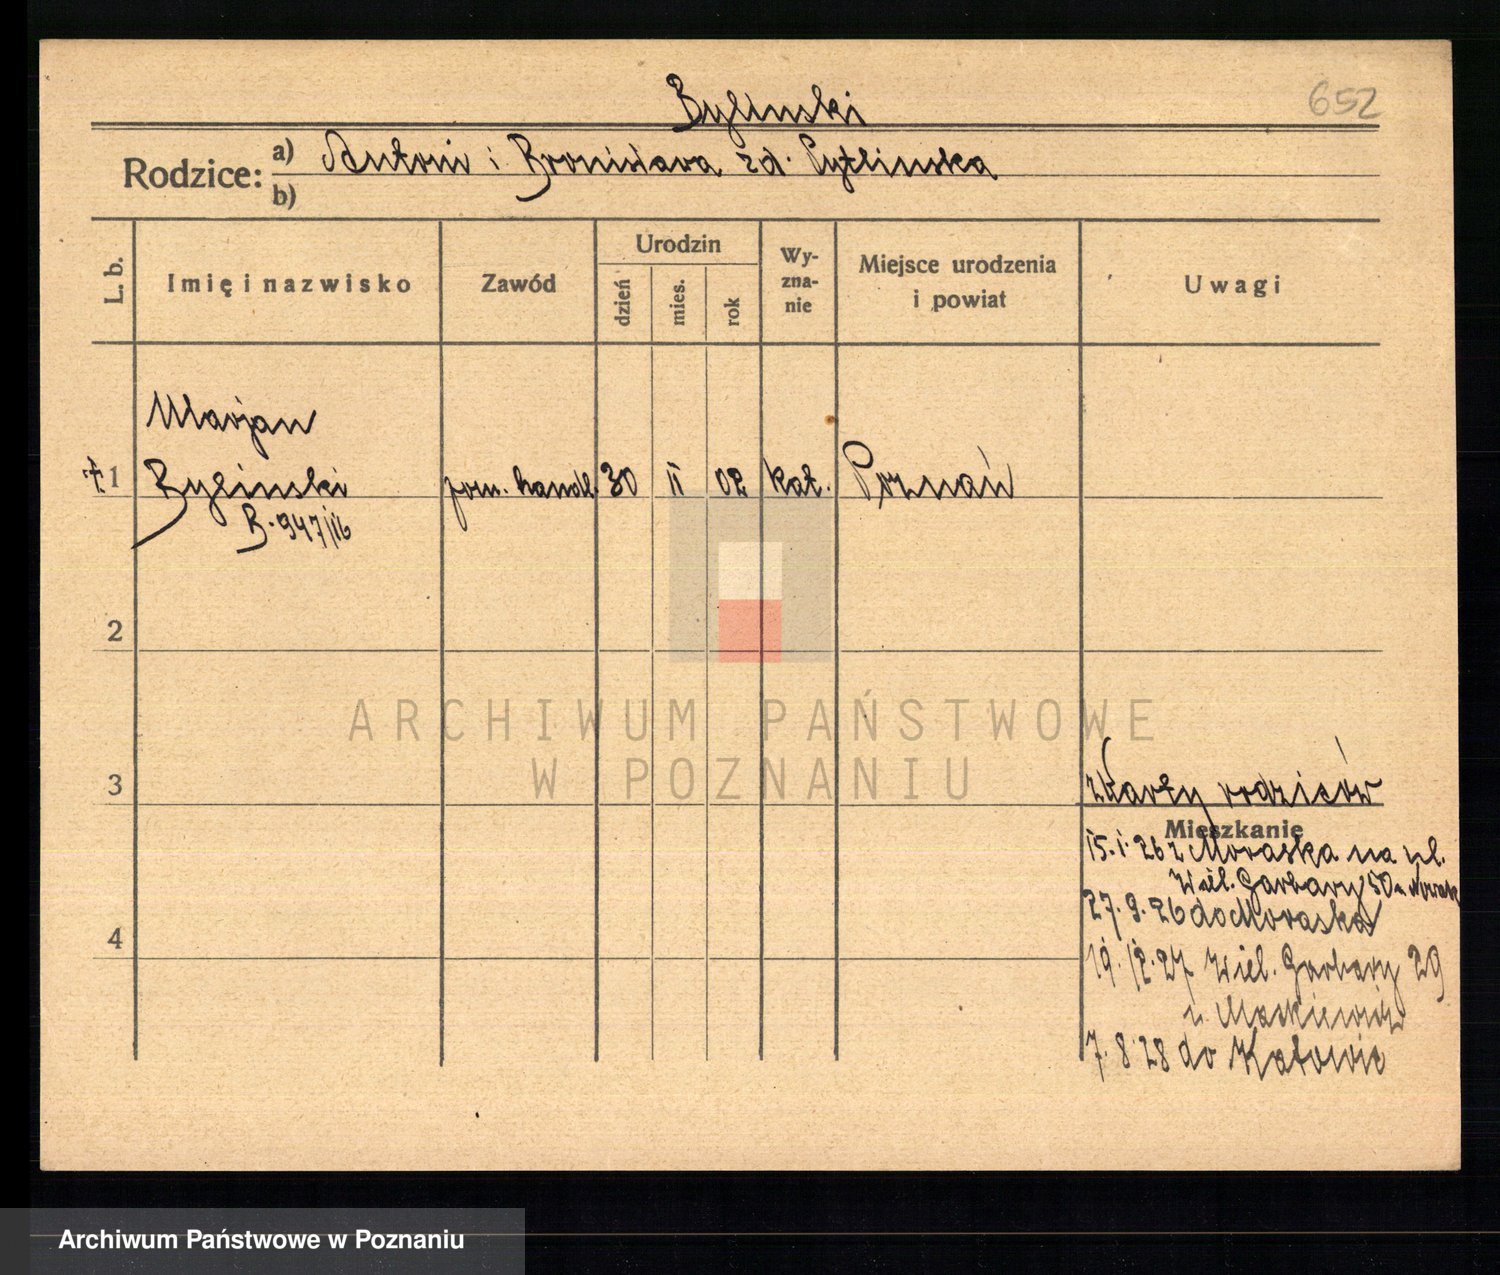 Bylinski
652
Rodzice: a) Antoni i Bronisława zd. Pytlinska
b)
L. b.
Imię i nazwisko
Zawód
Urodzin
dzień
mies.
rok
Wy-
zna-
nie
Miejsce urodzenia
i powiat
Uwagi
Marjan
1 Bylinski pom. handl. 30 II 02 kat. Poznań
B. 947/16
2
3
z karty rodziców
Mieszkanie
15. 1. 26 z Moraska na ul.
Wiel. Garbary 50 u Nowak
27. 9. 26 do Moraska
4
19. 12. 27 Wiel. Garbary 29
u Maskiewicz
7. 8 28 do Katowic
ARCHIWUM PAŃSTWOWE
W POZNANIU
Archiwum Państwowe w Poznaniu